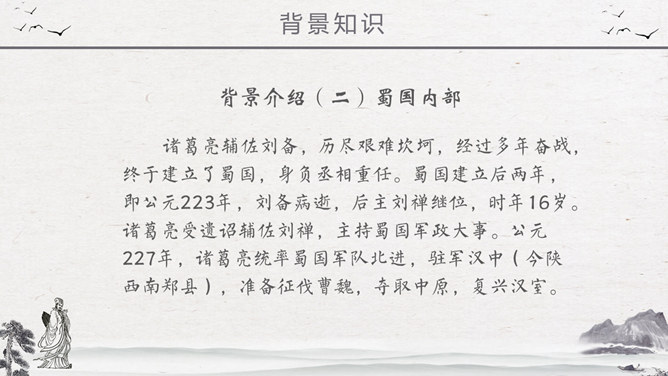 背景知识
背景介绍（二）蜀国内部
诸葛亮辅佐刘备，历尽艰难坎坷，经过多年奋战，
终于建立了蜀国，身负丞相重任。蜀国建立后两年，
即公元223年，刘备病逝，后主刘禅继位，时年16岁。
诸葛亮受遗诏辅佐刘禅，主持蜀国军政大事。公元
227年，诸葛亮统率蜀国军队北进，驻军汉中（今陕
西南郑县），准备征伐曹魏，夺取中原，复兴汉室。